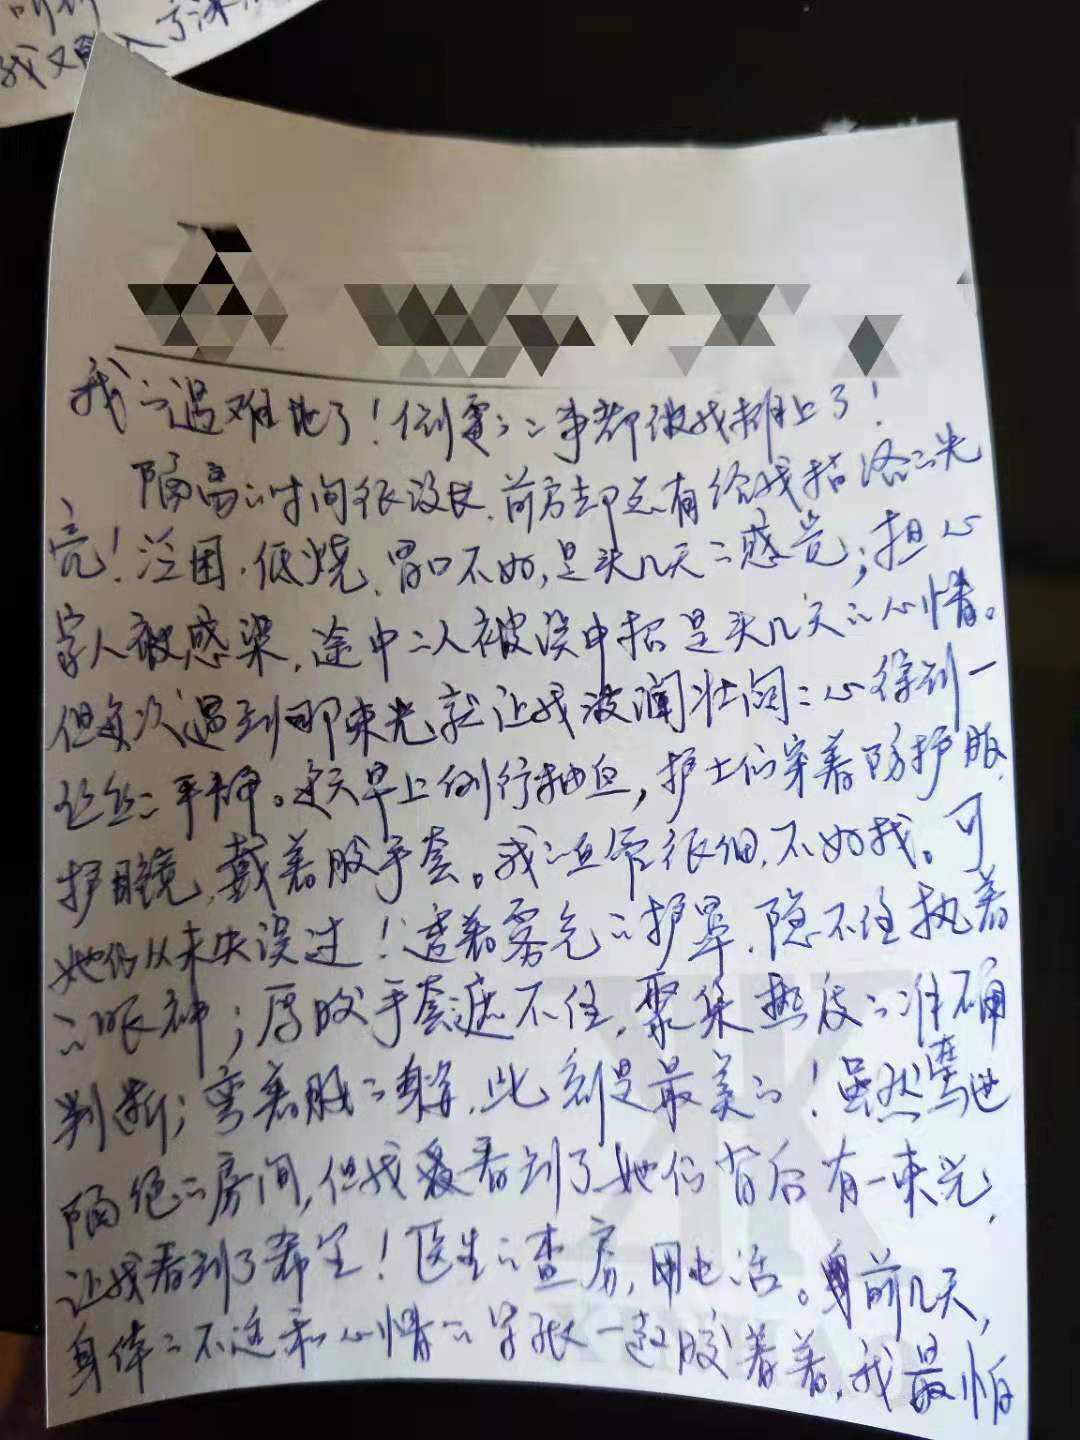 听诊
我又陷入了深
我六遇难地了！倒霉的事都被我撞上了！
隔离的时间很漫长，前方却总有给我指路的光
亮！泛困，低烧，胃口不好，是头几天的感觉；担心
家人被感染，途中的人被误中招是头几天的心情。
但每次遇到那束光就让我波澜壮阔的心得到一
丝丝的平静。这天早上例行抽血，护士们穿着防护服，
护目镜，戴着胶手套。我的血管很细，不好找。可
她们从未失误过！透着雾气的护罩，隐不住执着
的眼神；厚胶手套遮不住，聚集热度的准确
判断；弯着腰的身姿，此刻是最美的！虽然
隔绝的房间，但我看到了她们背后有一束光，
让我看到了希望！医生的查房，用电话。前几天，
身体的不适和心情的紧张一起胶着着，我最怕